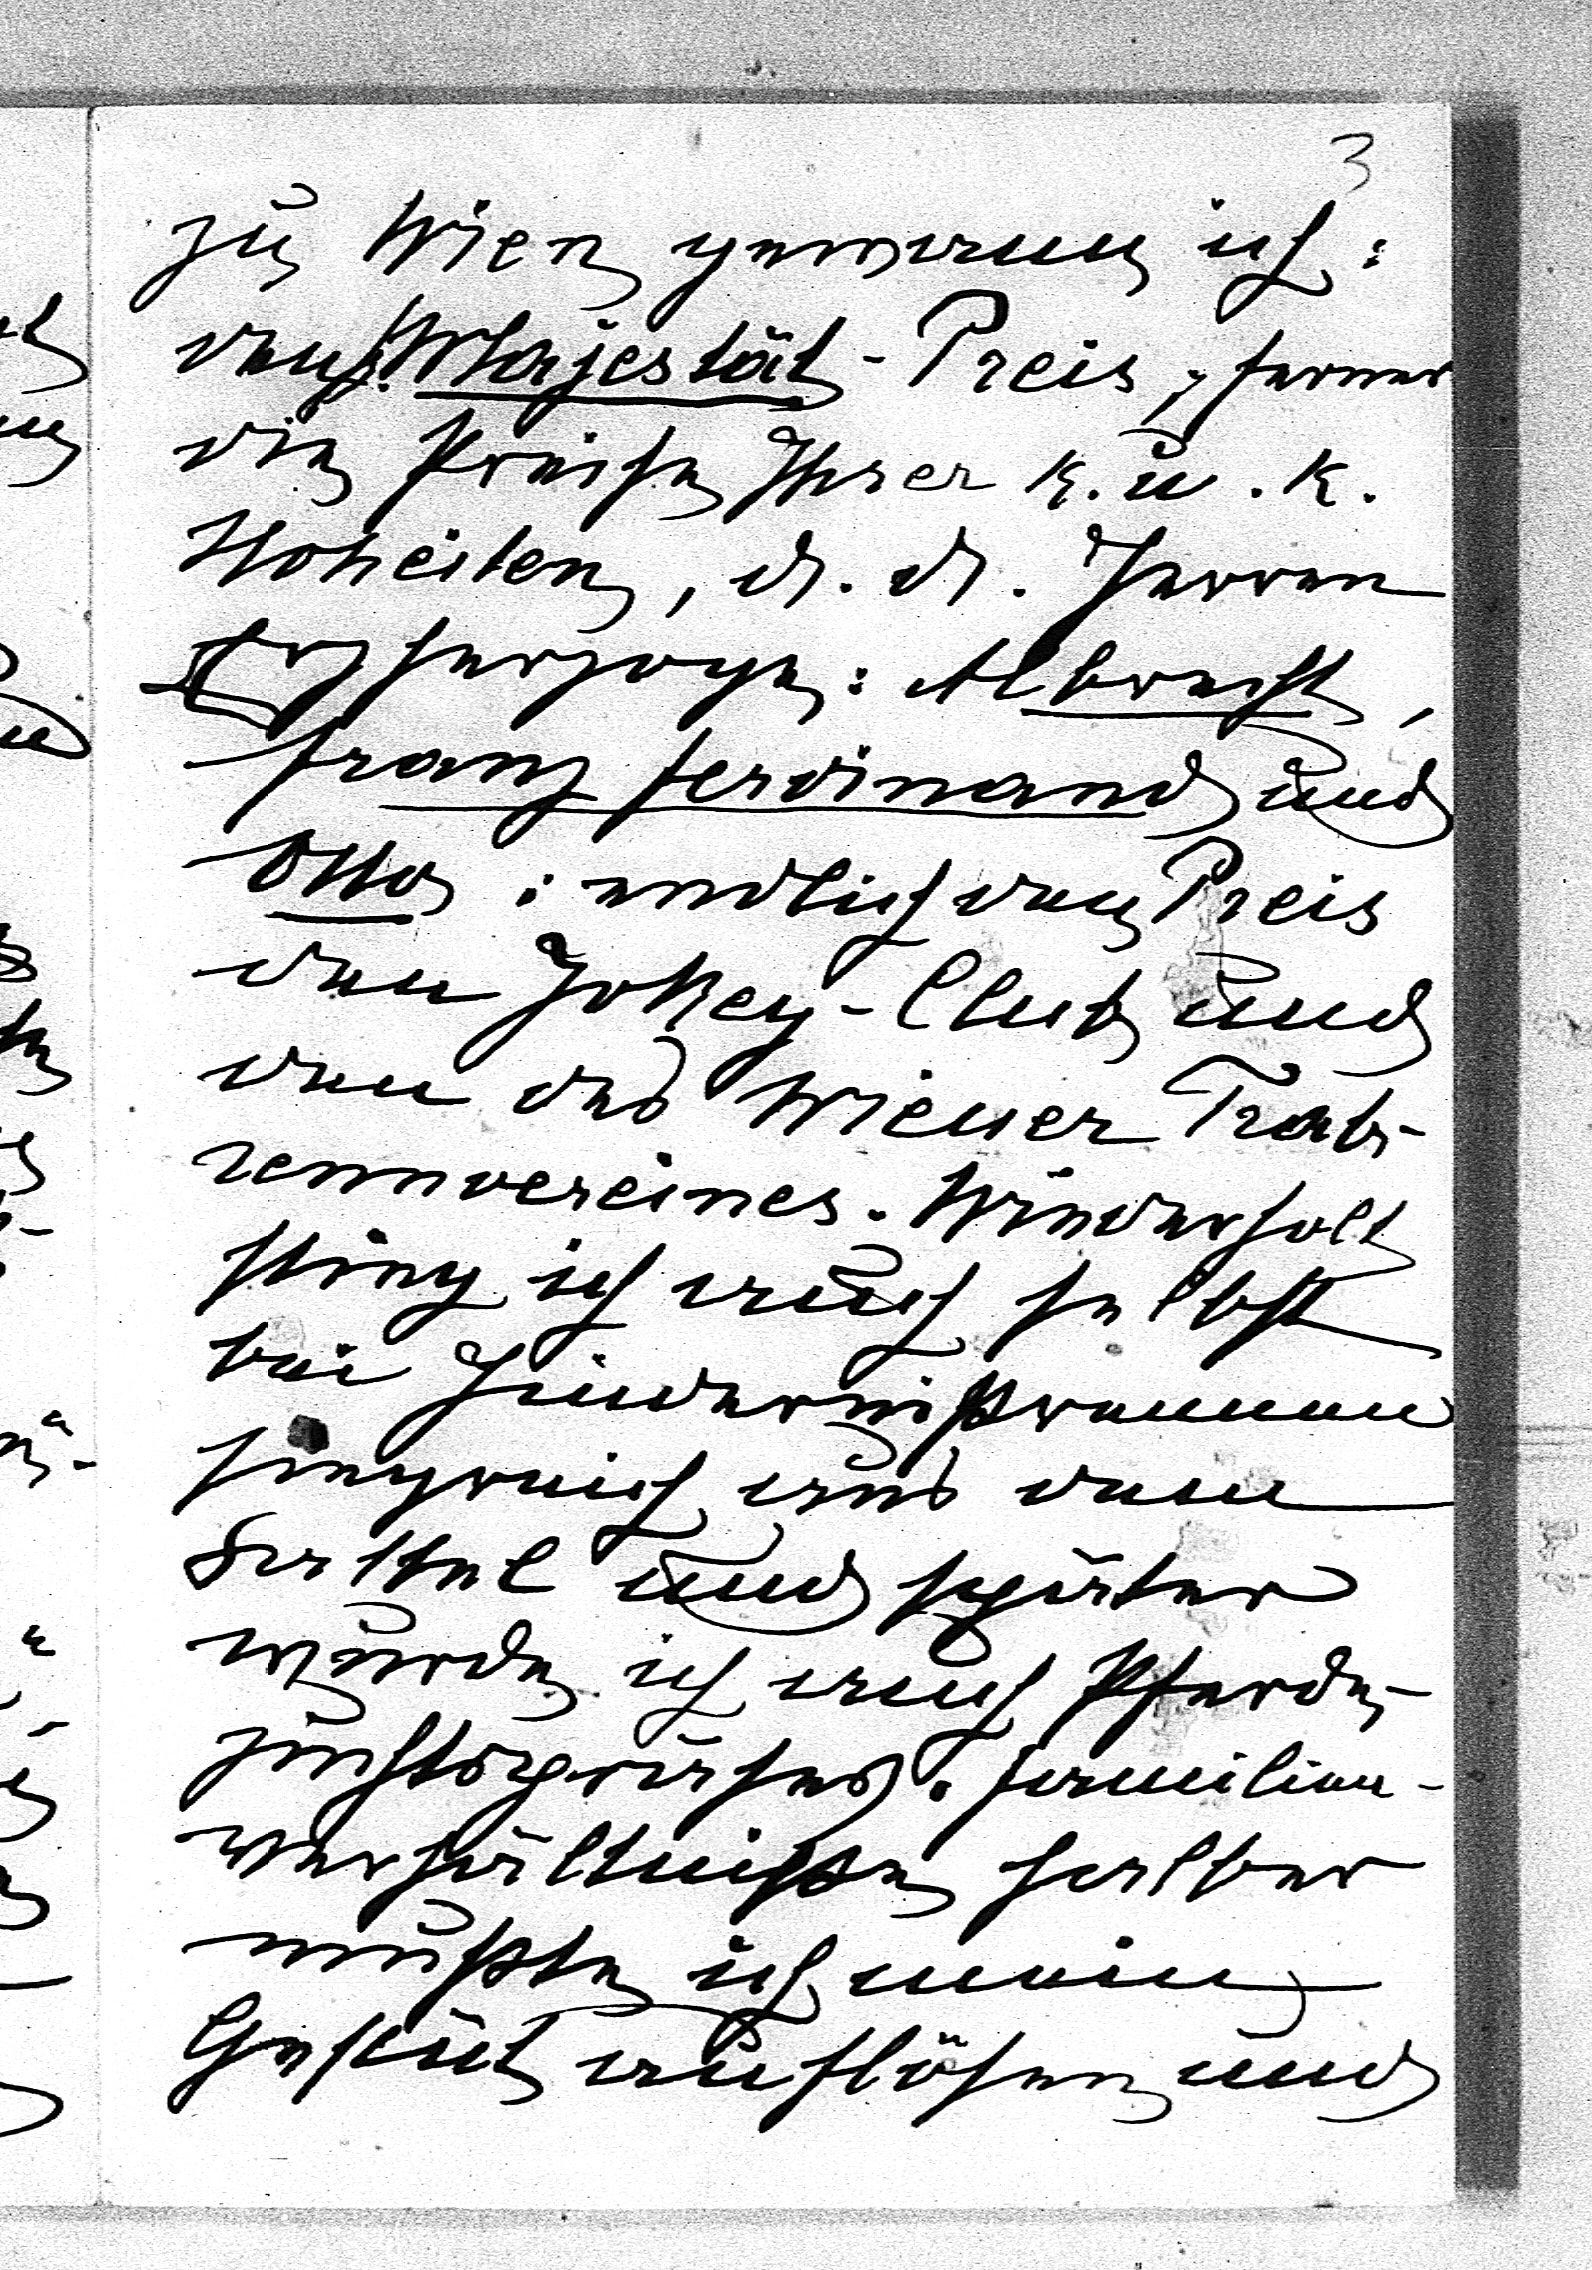 3
zu Wien gewann ich:
den Majestät-Preis, ferner
die Preise Ihrer k. u. k.
Hoheiten, d. d. Herren
Erzherzoge: Albrecht,
Franz Ferdinand und
Otto; endlich den Preis
vom Jokey-Club und
von des Wiener Trab-
rennvereines. Wiederholt
stieg ich auch selbst
bei Hindernißrennen
siegreich aus dem
Sattel und später
wurde ich auch Pferde-
zuchtspreises. Familien-
verhältniße halber
mußte ich mein
Gestüt auflösen und